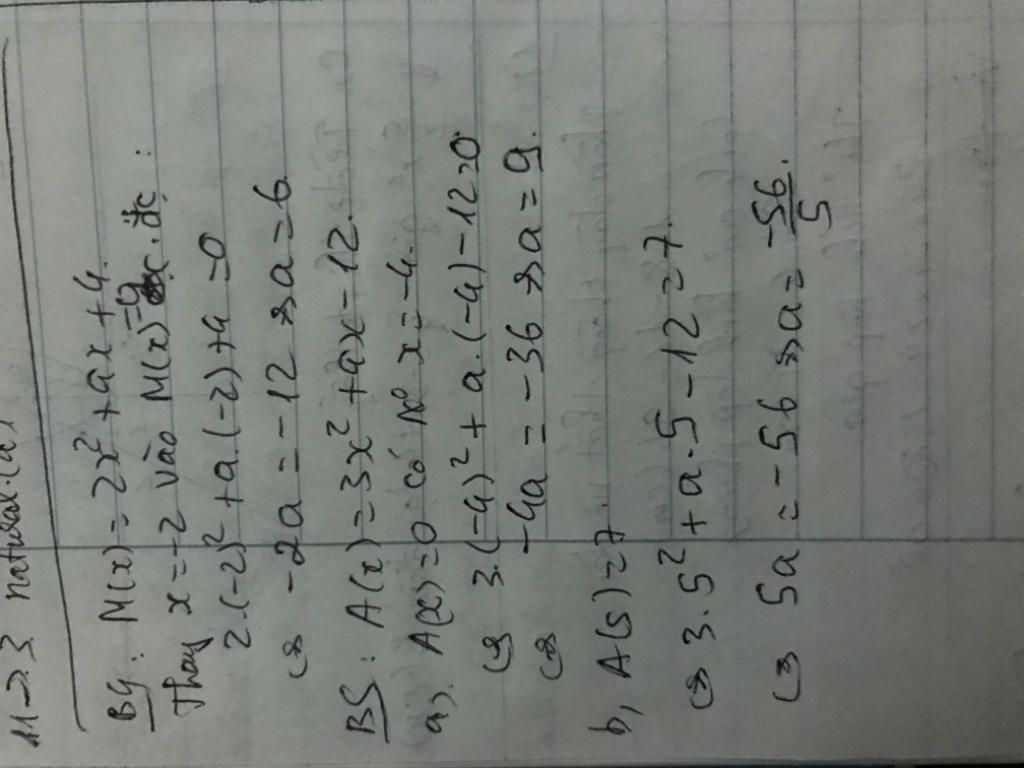 11 → 3 natural.(a)
B4: M(x) = 2x² + ax + 4.
Thay x = -2 vào M(x) = 0. đc :
2.(-2)² + a.(-2) + 4 = 0
(=) -2a = -12 => a = 6
B5: A(x) = 3x² + ax - 12.
a). A(x) = 0 có n⁰ x = -4.
(=) 3.(-4)² + a.(-4) - 12 = 0
(=) -4a = -36 => a = 9.
b, A(5) = 7.
(=) 3.5² + a.5 - 12 = 7.
(=) 5a = -56 => a = -56/5.